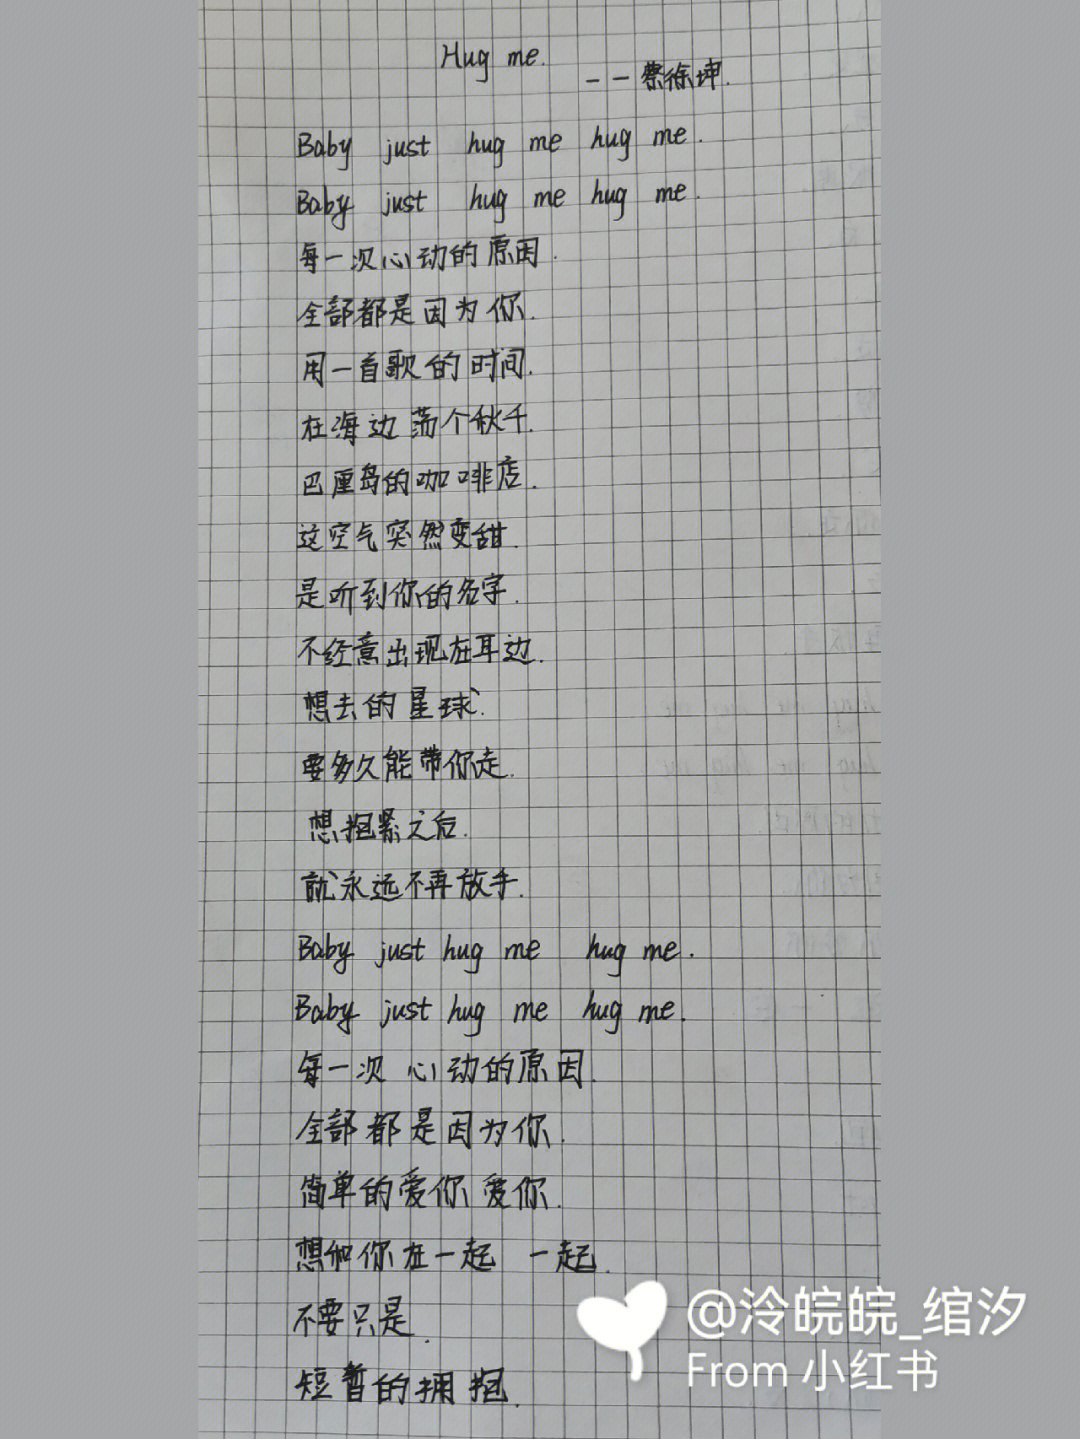 Hug me.
——蔡徐坤.
Baby just hug me hug me.
Baby just hug me hug me.
每一次心动的原因.
全部都是因为你.
用一首歌的时间.
在海边荡个秋千.
巴厘岛的咖啡店.
这空气突然变甜.
是听到你的名字.
不经意出现在耳边.
想去的星球.
要多久能带你走.
想抱紧之后.
就永远不再放手.
Baby just hug me hug me.
Baby just hug me hug me.
每一次心动的原因.
全部都是因为你.
简单的爱你 爱你.
想和你在一起 一起.
不要只是.
短暂的拥抱.
@泠皖皖_绾汐
From 小红书